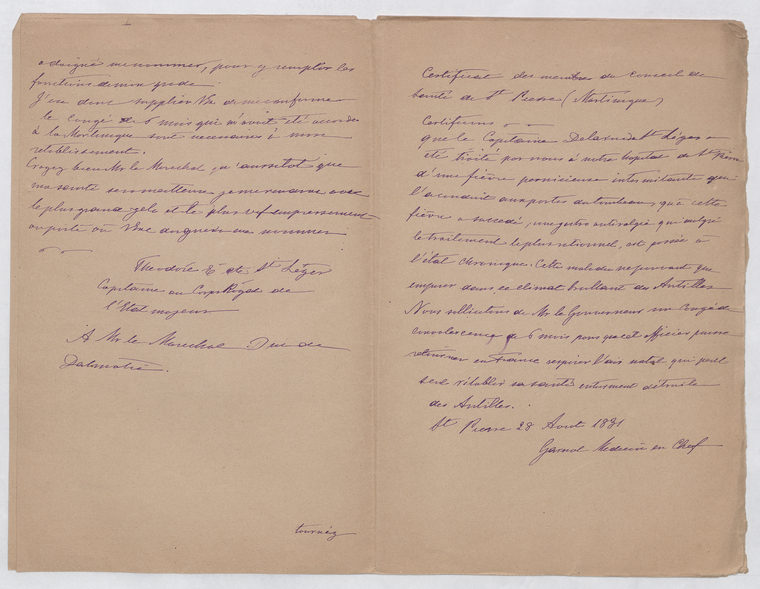 a daigné me nommer, pour y remplir les
fonctions de mon grade.
J'ose donc supplier Vtre de me confirmer
le congé de 6 mois qui m'avait été accordé
à la Martinique sont necessaires à mon
retablissement.
Croyez bien Mr le Marechal, qu'aussitot que
ma santé sera meilleure je me rendrai avec
le plus grand zele et le plus vif empressement
au poste où Vtre daignera me nommer
Theodore E de St Léger
Capitaine au Corps Royal de
l'Etat major
A Mr le Marechal Duc de
Dalmatie.
tournez
Certificat des membres du Conseil de
Santé de St Pierre (Martinique)
Certifions
que le Capitaine St Léger a
été traité par nous à notre hopital de St Pierre
d'une fièvre pernicieuse intermitante qui
l'a conduit aux portes du tombeau, qu'à cette
fièvre a succedé, une gastro qui malgré
le traitement le plus rationnel, est passée à
l'état chronique. Cette maladie ne pouvant que
empirer dans ce climat brullant des Antilles
Nous sollicitons de Mr le Gouverneur un congé de
de 6 mois pour que cet officier puisse
retourner en France respirer l'air natal qui peut
seul rétablir sa santé entierement détruite
des Antilles.
St Pierre 28 Aout 1831
Garnot Medecin en Chef